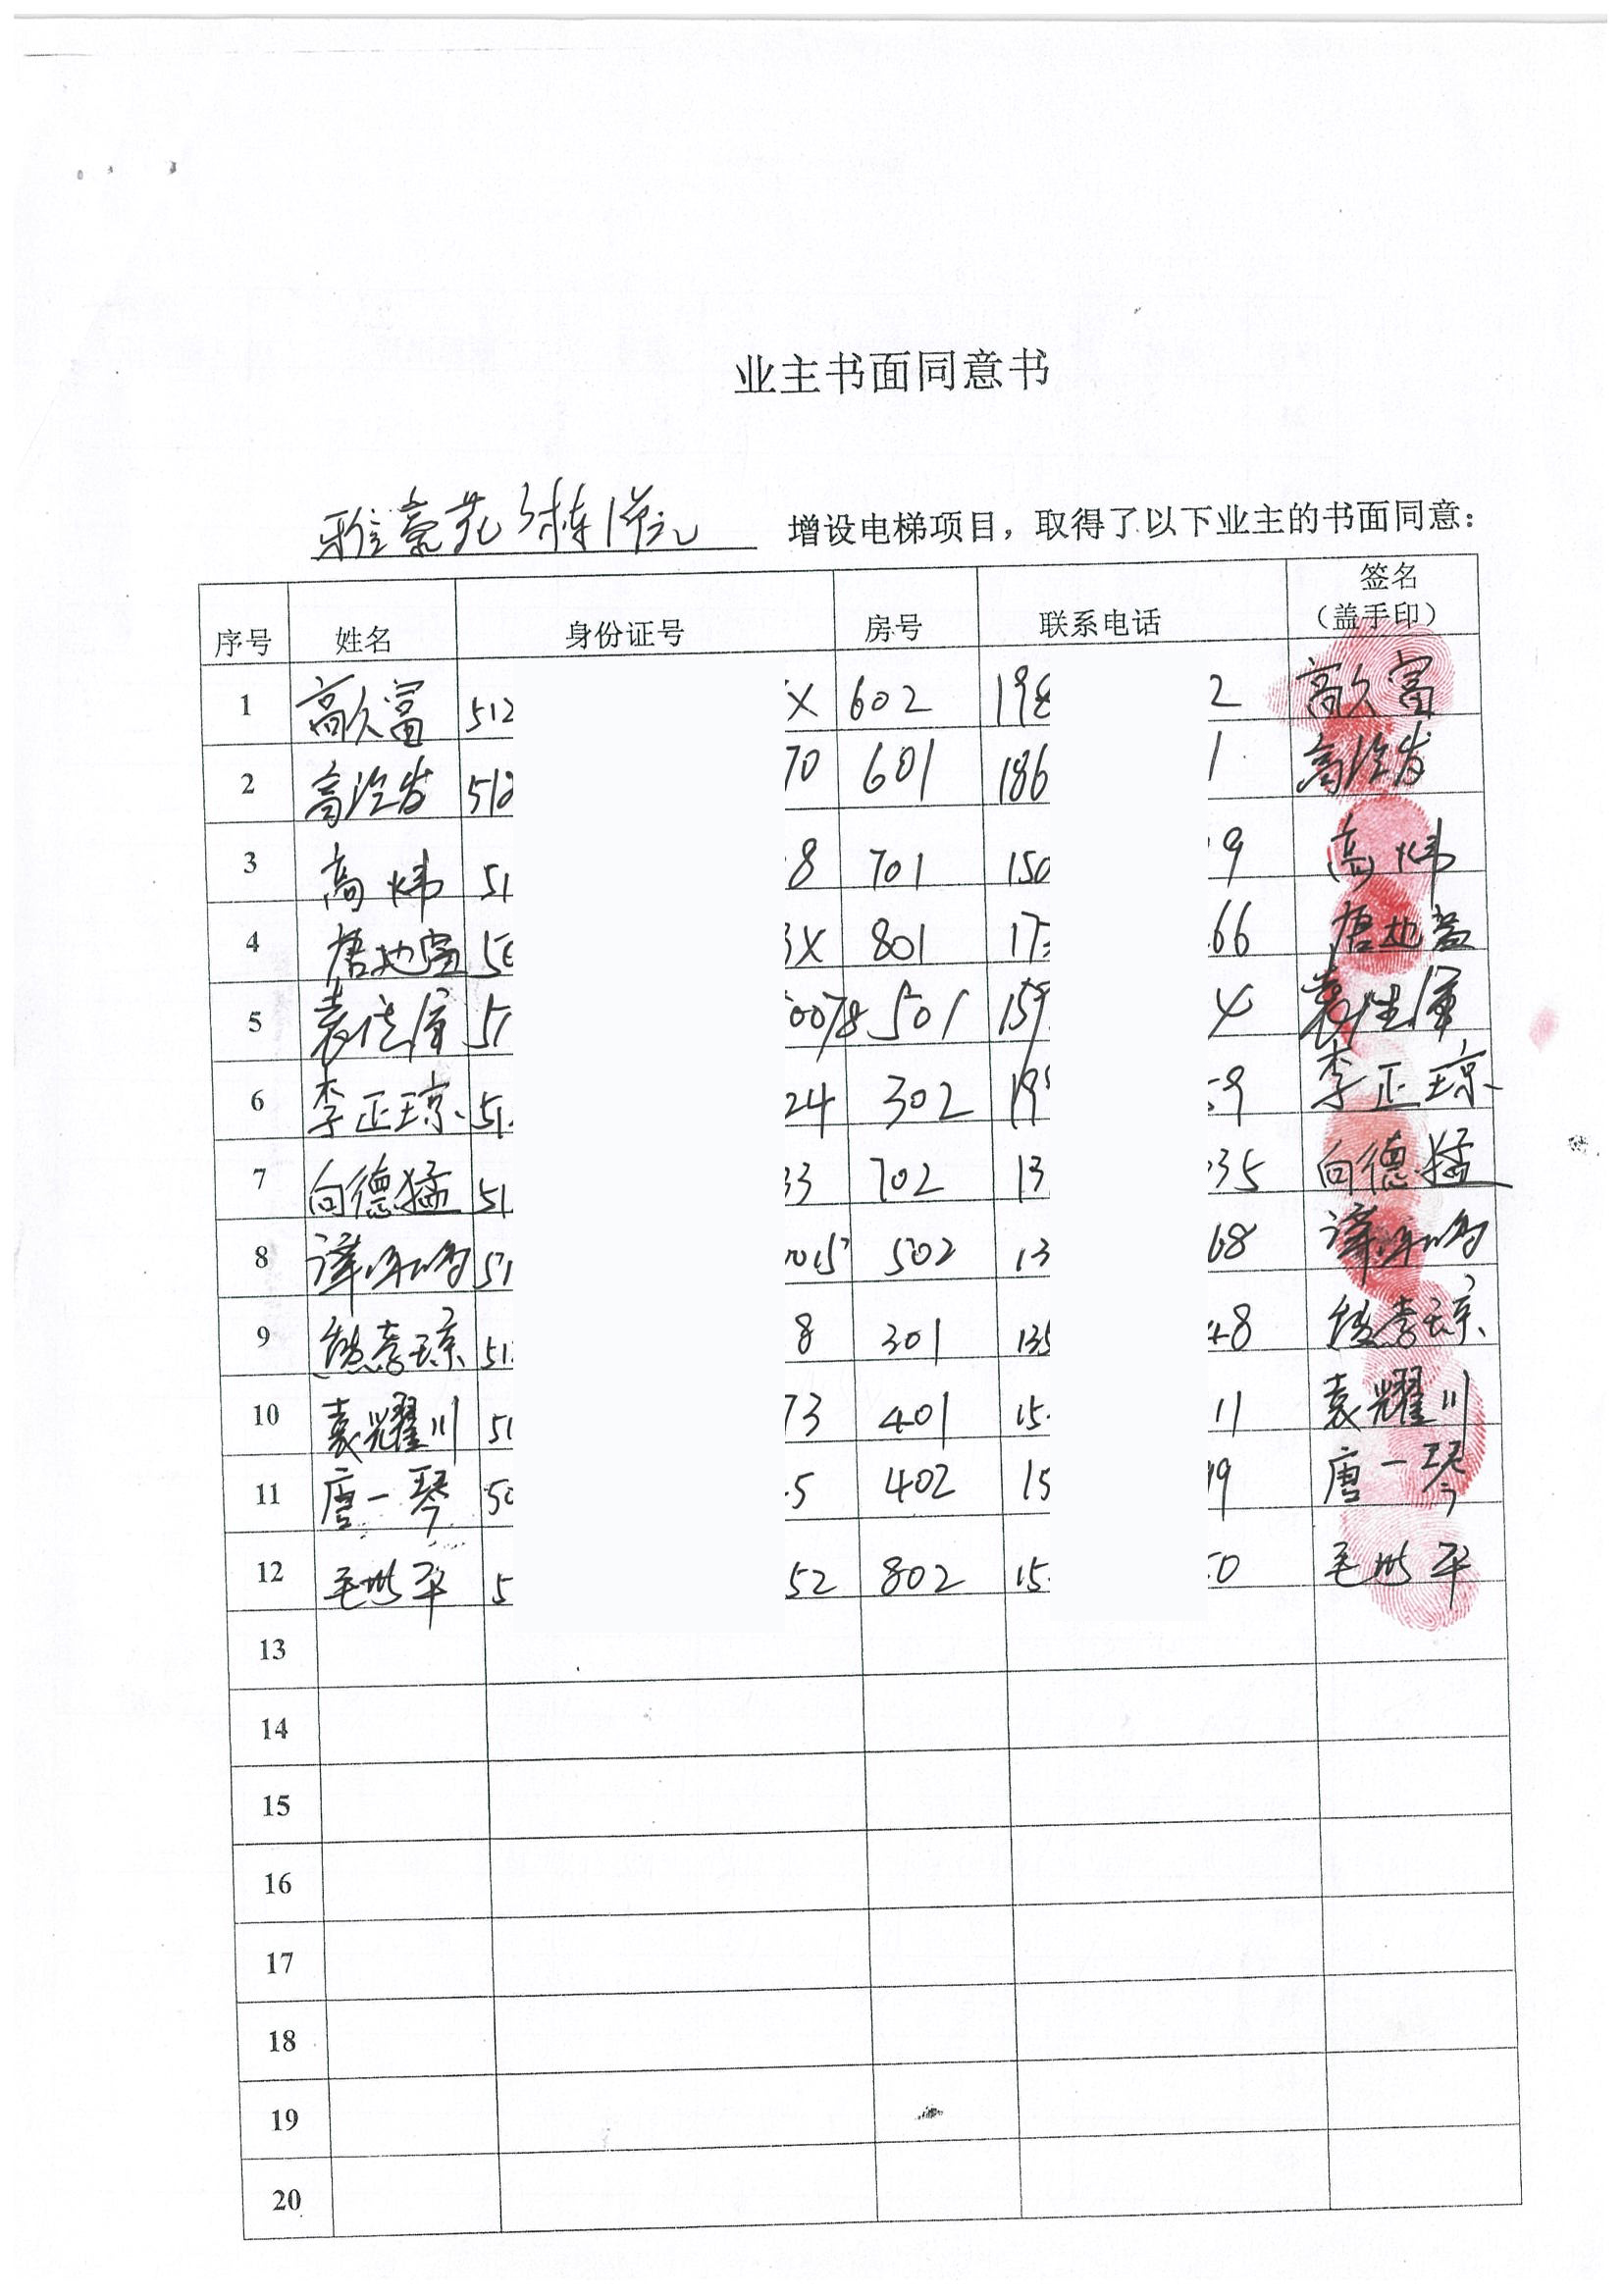 业主书面同意书
雅豪苑3栋1单元 增设电梯项目，取得了以下业主的书面同意：
序号 姓名 身份证号 房号 联系电话 签名（盖手印）
1 高久富 512 X 602 198 2 高久富
2 高 发 512 70 601 186 1 高 发
3 高炜 51 8 701 150 9 高炜
4 唐地富 50 3X 801 17 66 唐地富
5 袁 军 51 0078 501 159 4 袁 军
6 李正琼 51 24 302 19 59 李正琼
7 向德猛 51 33 702 13 35 向德猛
8 谭 51 0015 502 13 68 谭
9 熊孝琼 51 8 301 135 48 熊孝琼
10 袁耀川 51 73 401 15 11 袁耀川
11 唐一琴 50 5 402 15 99 唐一琴
12 毛世平 5 52 802 15 50 毛世平
13
14
15
16
17
18
19
20